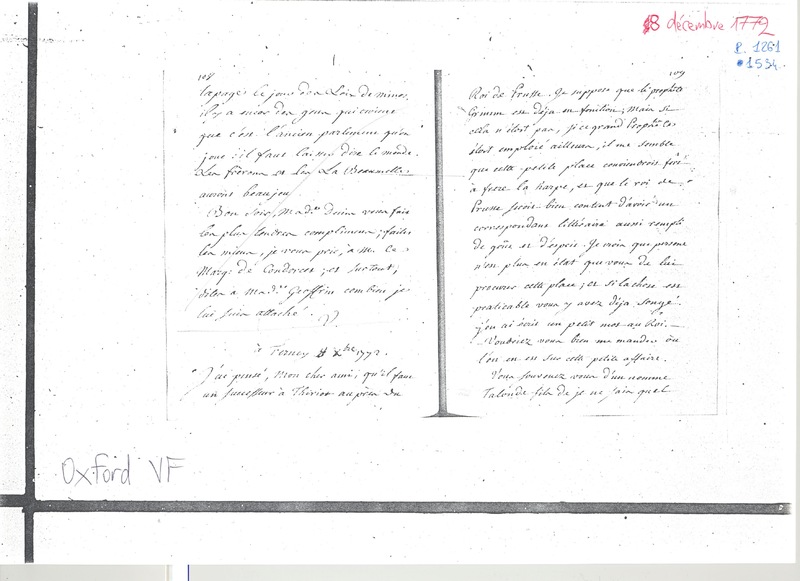 8 décembre 1772
P. 1261
#1534.
108
tapage le jour des Loix de minos,
il y a encor des gens qui croient
que c'est l'ancien parlement qu'on
joue: il faut laisser dire le monde.
Les frérons et les La Beaumelles
auront beaujeu
Bon soir, Made. Denis vous fait
les plus tendres complimens; faites
les miens, je vous prie, à M. le
Marq: de Condorcet; et surtout,
dites à Made. Geoffrin combien je
lui suis attaché.
à Ferney 8 Xbre 1772.
J'ai pensé, mon cher ami, qu'il faut
un successeur à Thiriot auprès du
109
Roi de Prusse. Je suppose que le prophète
Grimm est déja en fonction; mais si
cela n'étoit pas, si ce grand Prophète
étoit emploié ailleurs, il me semble
que cette petite place conviendroit fort
à frere la harpe, et que le roi de
Prusse seroit bien content d'avoir un
correspondant littéraire aussi rempli
de goût et d'esprit. Je crois que persone
n'est plus en état que vous de lui
procurer cette place; et si la chose est
praticable vous y avez déja songé.
j'en ai écrit un petit mot au Roi.
Voudriez vous bien me mander où
l'on en est sur cette petite affaire.
Vous souvenez vous d'un nommé
Talonde fils de je ne sais quel
Oxford VF